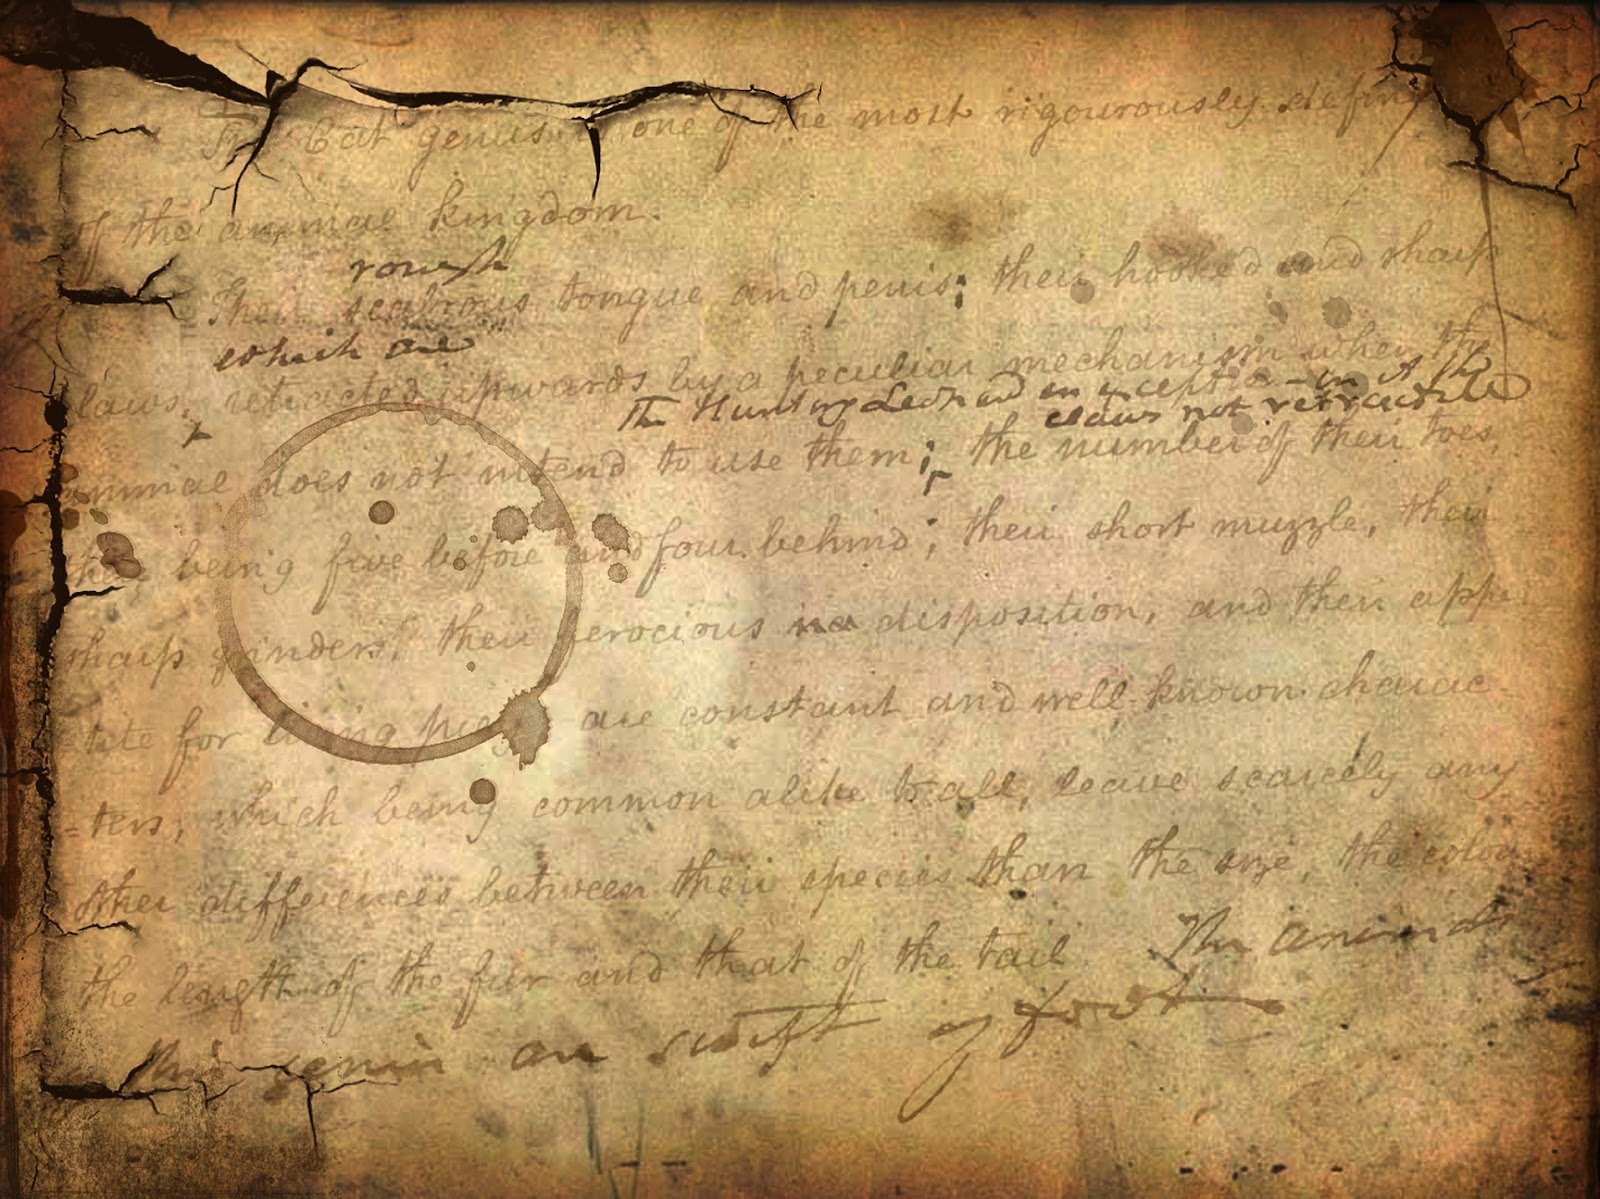 The Cat genus is one of the most rigourously defin
of the animal kingdom.
rough
Their scabrous tongue and penis; their hooked and sharp
which are
claws, retracted upwards by a peculiar mechanism when the
The Hunting Leopard an exception - in it the
claws not retractile
animal does not intend to use them; the number of their toes
they being five before and four behind; their short muzzle, their
sharp grinders, their ferocious disposition, and their appe
-tite for living prey are constant and well known charac-
-ters, which being common alike to all, leave scarcely any
other differences between their species than the size, the colou
the length of the fur and that of the tail. The animals
this genus are swift of foot